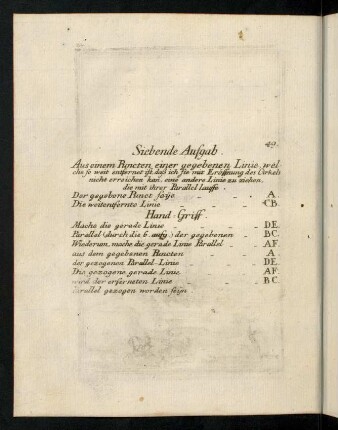 49.
Siebende Aufgab
Aus einem Puncten einer gegebenen Linie, wel
che so weit entfernet ist daß ich sie mit Eröffnung des Cirkels
nicht erreichen kan, eine andere Linie zu ziehen,
die mit ihrer Parallel lauffe
Der gegebene Punct seye A.
Die weitentfernte Linie CB.
Hand-Griff
Mache die gerade Linie DE.
Parallel (durch die 6. aufg.) der gegebenen BC.
Wiederum, mache die gerade Linie Parallel AF.
aus dem gegebenen Puncten A.
der gezogenen Parallel-Linie DE.
Die gezogene gerade Linie AF.
wird der entferneten Linie BC.
Parallel gezogen worden seyn